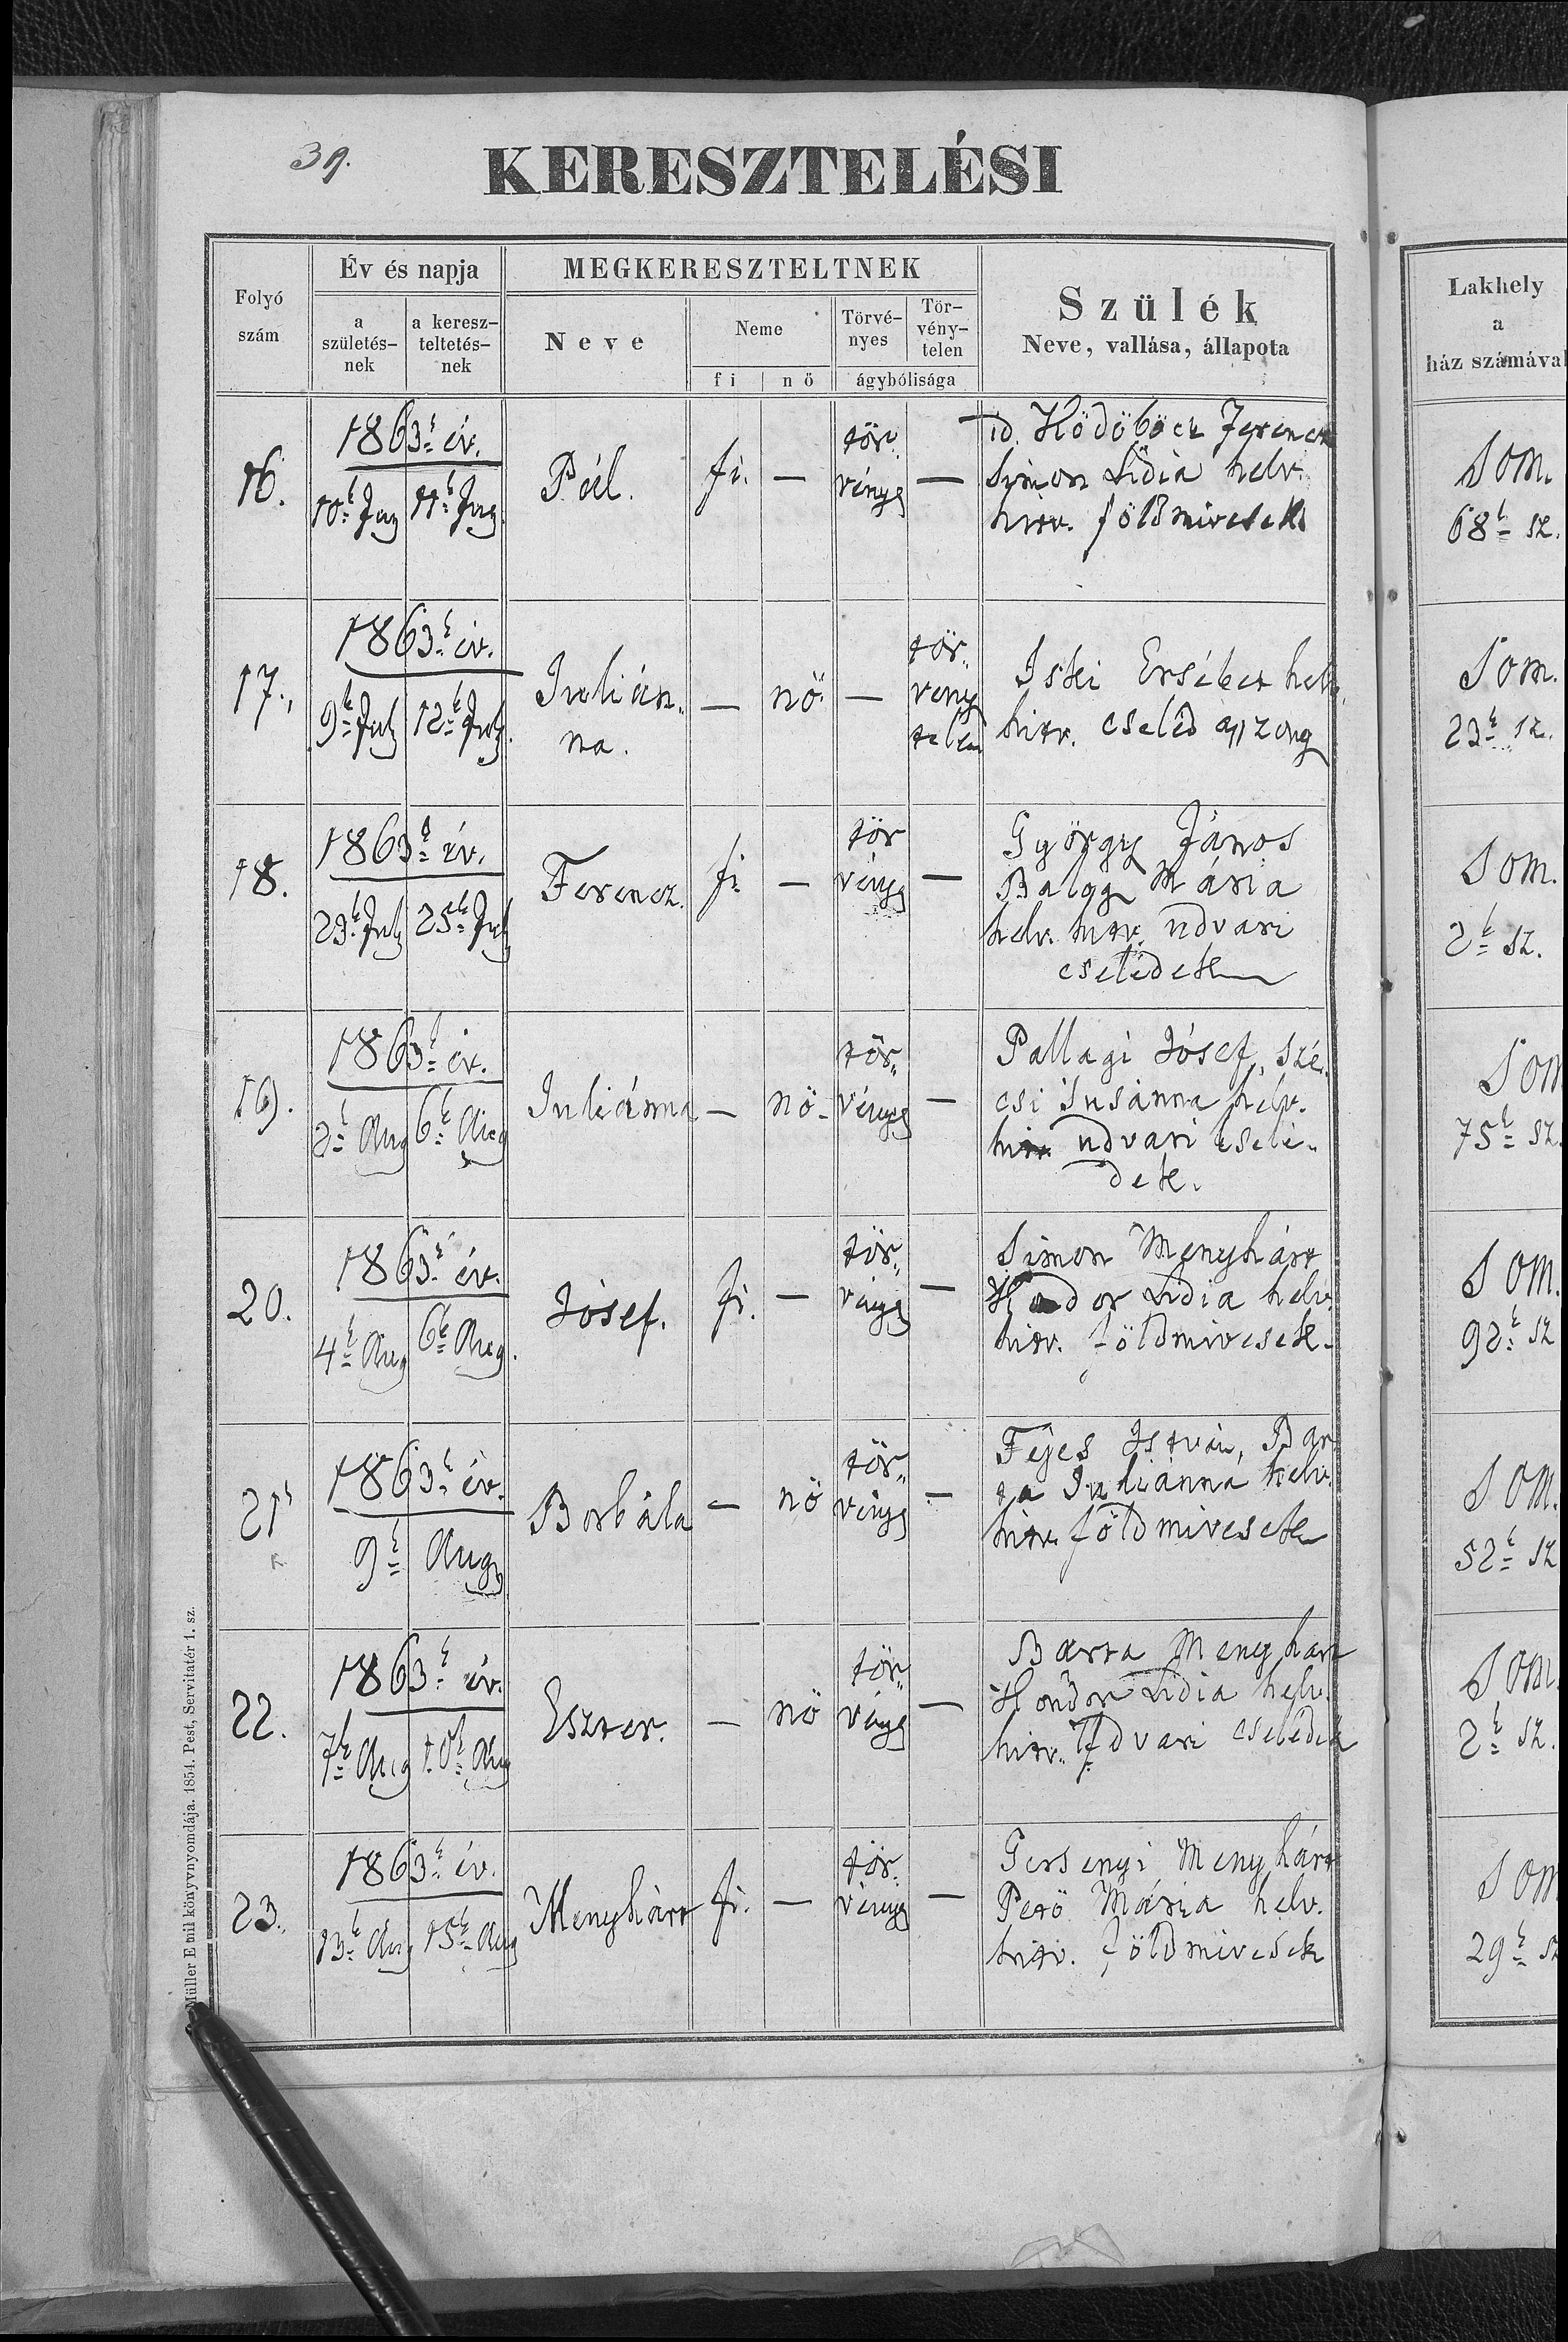 39.
KERESZTELÉSI
Folyó
szám
Év és napja
a
születés-
nek
a keresz-
teltetés-
nek
MEGKERESZTELTNEK
Neve
Neme
fi
nö
Törvé-
nyes
Tör-
vény-
telen
ágybólisága
Szülék
Neve, vallása, állapota
Lakhely
a
ház számával
16.
1863k év.
10k 11k
Pál.
fi. —
tör„
vénys —
id. Ködöböcz Ferencz
Simon Lidia helv.
hitv. földmivesek
Som.
68k sz.
17.,
1863k év.
9k Jul 12k Jul.
Julián„
na.
— nö —
tör„
vény
telen
Iski Ersébet helv.
hitv. cseléd
Som.
23k sz.
18.
1863k év.
23k Jul 25k Jul
Ferencz.
fi —
tör
vénys —
György János
Balog Mária
helv. hitv. udvari
cselédek
Som.
2k sz.
19.
1863k év.
2k Aug 6k Aug
Juliánna
— nö.
tör„
vénys —
Pallagi Jósef, Szé„
csi Susánna helv.
hitv. udvari cselé„
dek.
Som
75k sz.
20.
1863k év.
4k Aug 6k Aug.
Jósef.
fi. —
tör„
vénys —
Simon Menyhárt
Hodor Lidia helv.
hitv. földmivesek.
Som.
92k sz
21
1863k év.
9k Aug
Borbála
— nö
tör„
vénys —
Fejes István, Bar
ta Juliánná helv.
hitv. földmivesek
Som.
52k sz
22.
1863k év.
7k Aug 10k Aug
Eszter.
— nö
tör„
vénys —
Barta Menyhart
Hondor Lidia helv.
hitv. Udvari cselédek
Som.
2k sz.
23.
1863k év.
13k Aug 15k Aug
Menyhárt
fi. —
tör„
vénys —
Gersenyi Menyhárt
Pető Mária helv.
hitv. földmivesek
Som
29k sz
Müller Emil könyvnyomdája. 1854. Pest, Servitatér 1. sz.